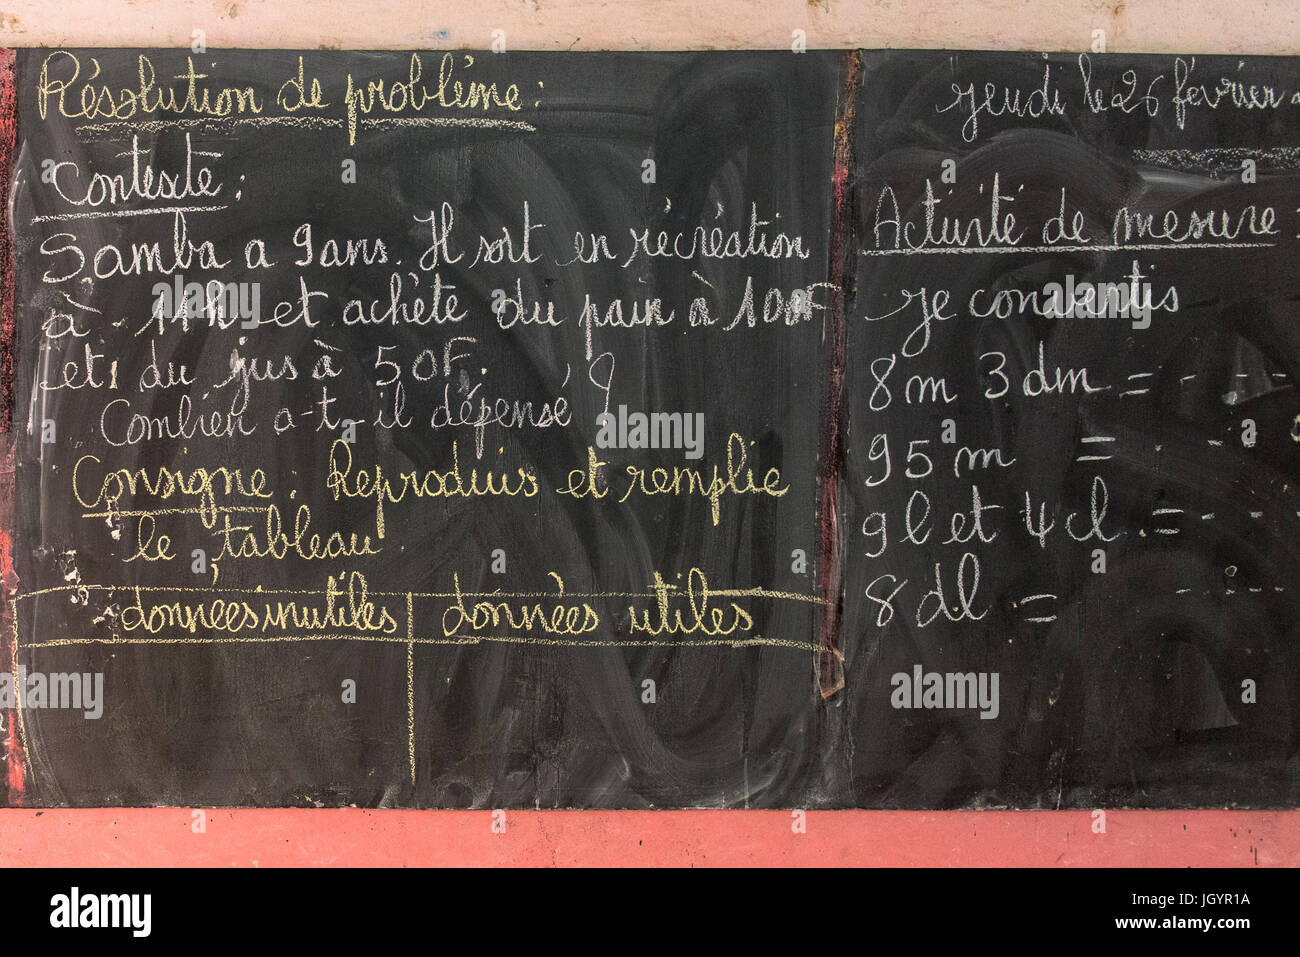 Résolution de problème :
Contexte :
Samba a 9 ans. Il sort en récréation
à 11h et achète du pain à 100F
et du jus à 50F.
Combien a-t-il dépensé ?
Consigne : Reproduis et remplie
le tableau.
données inutiles données utiles
jeudi le 26 février
Activité de mesure :
je convertis
8m 3dm = - - - -
95m = . . . .
9l et 4cl = - - - -
8dl = - - - -
alamy stock photo
JGYR1A
www.alamy.com